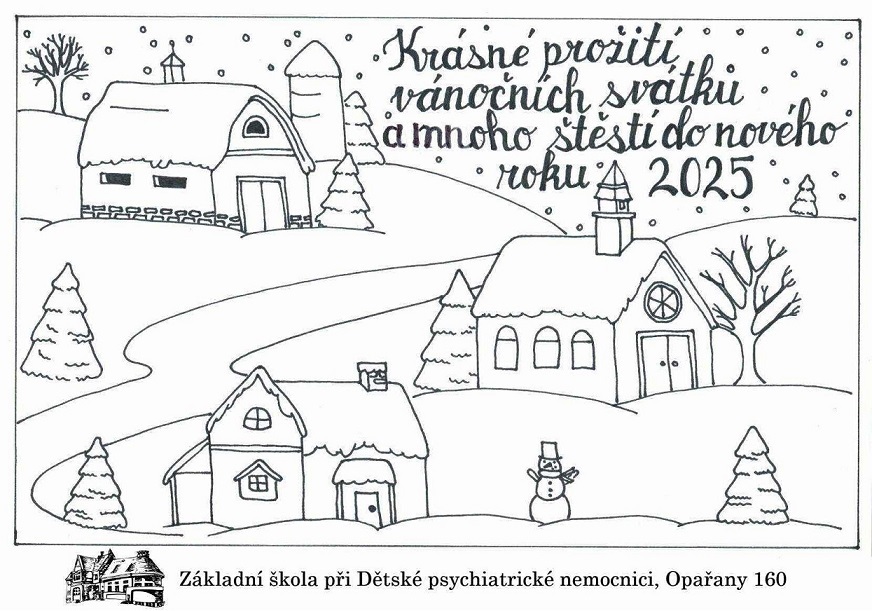 Krásné prožití
vánočních svátků
a mnoho štěstí do nového
roku 2025
Základní škola při Dětské psychiatrické nemocnici, Opařany 160